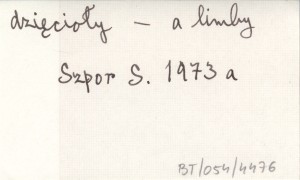 dzięcioły - a limby
Szpor S. 1973 a
BT/054/4476